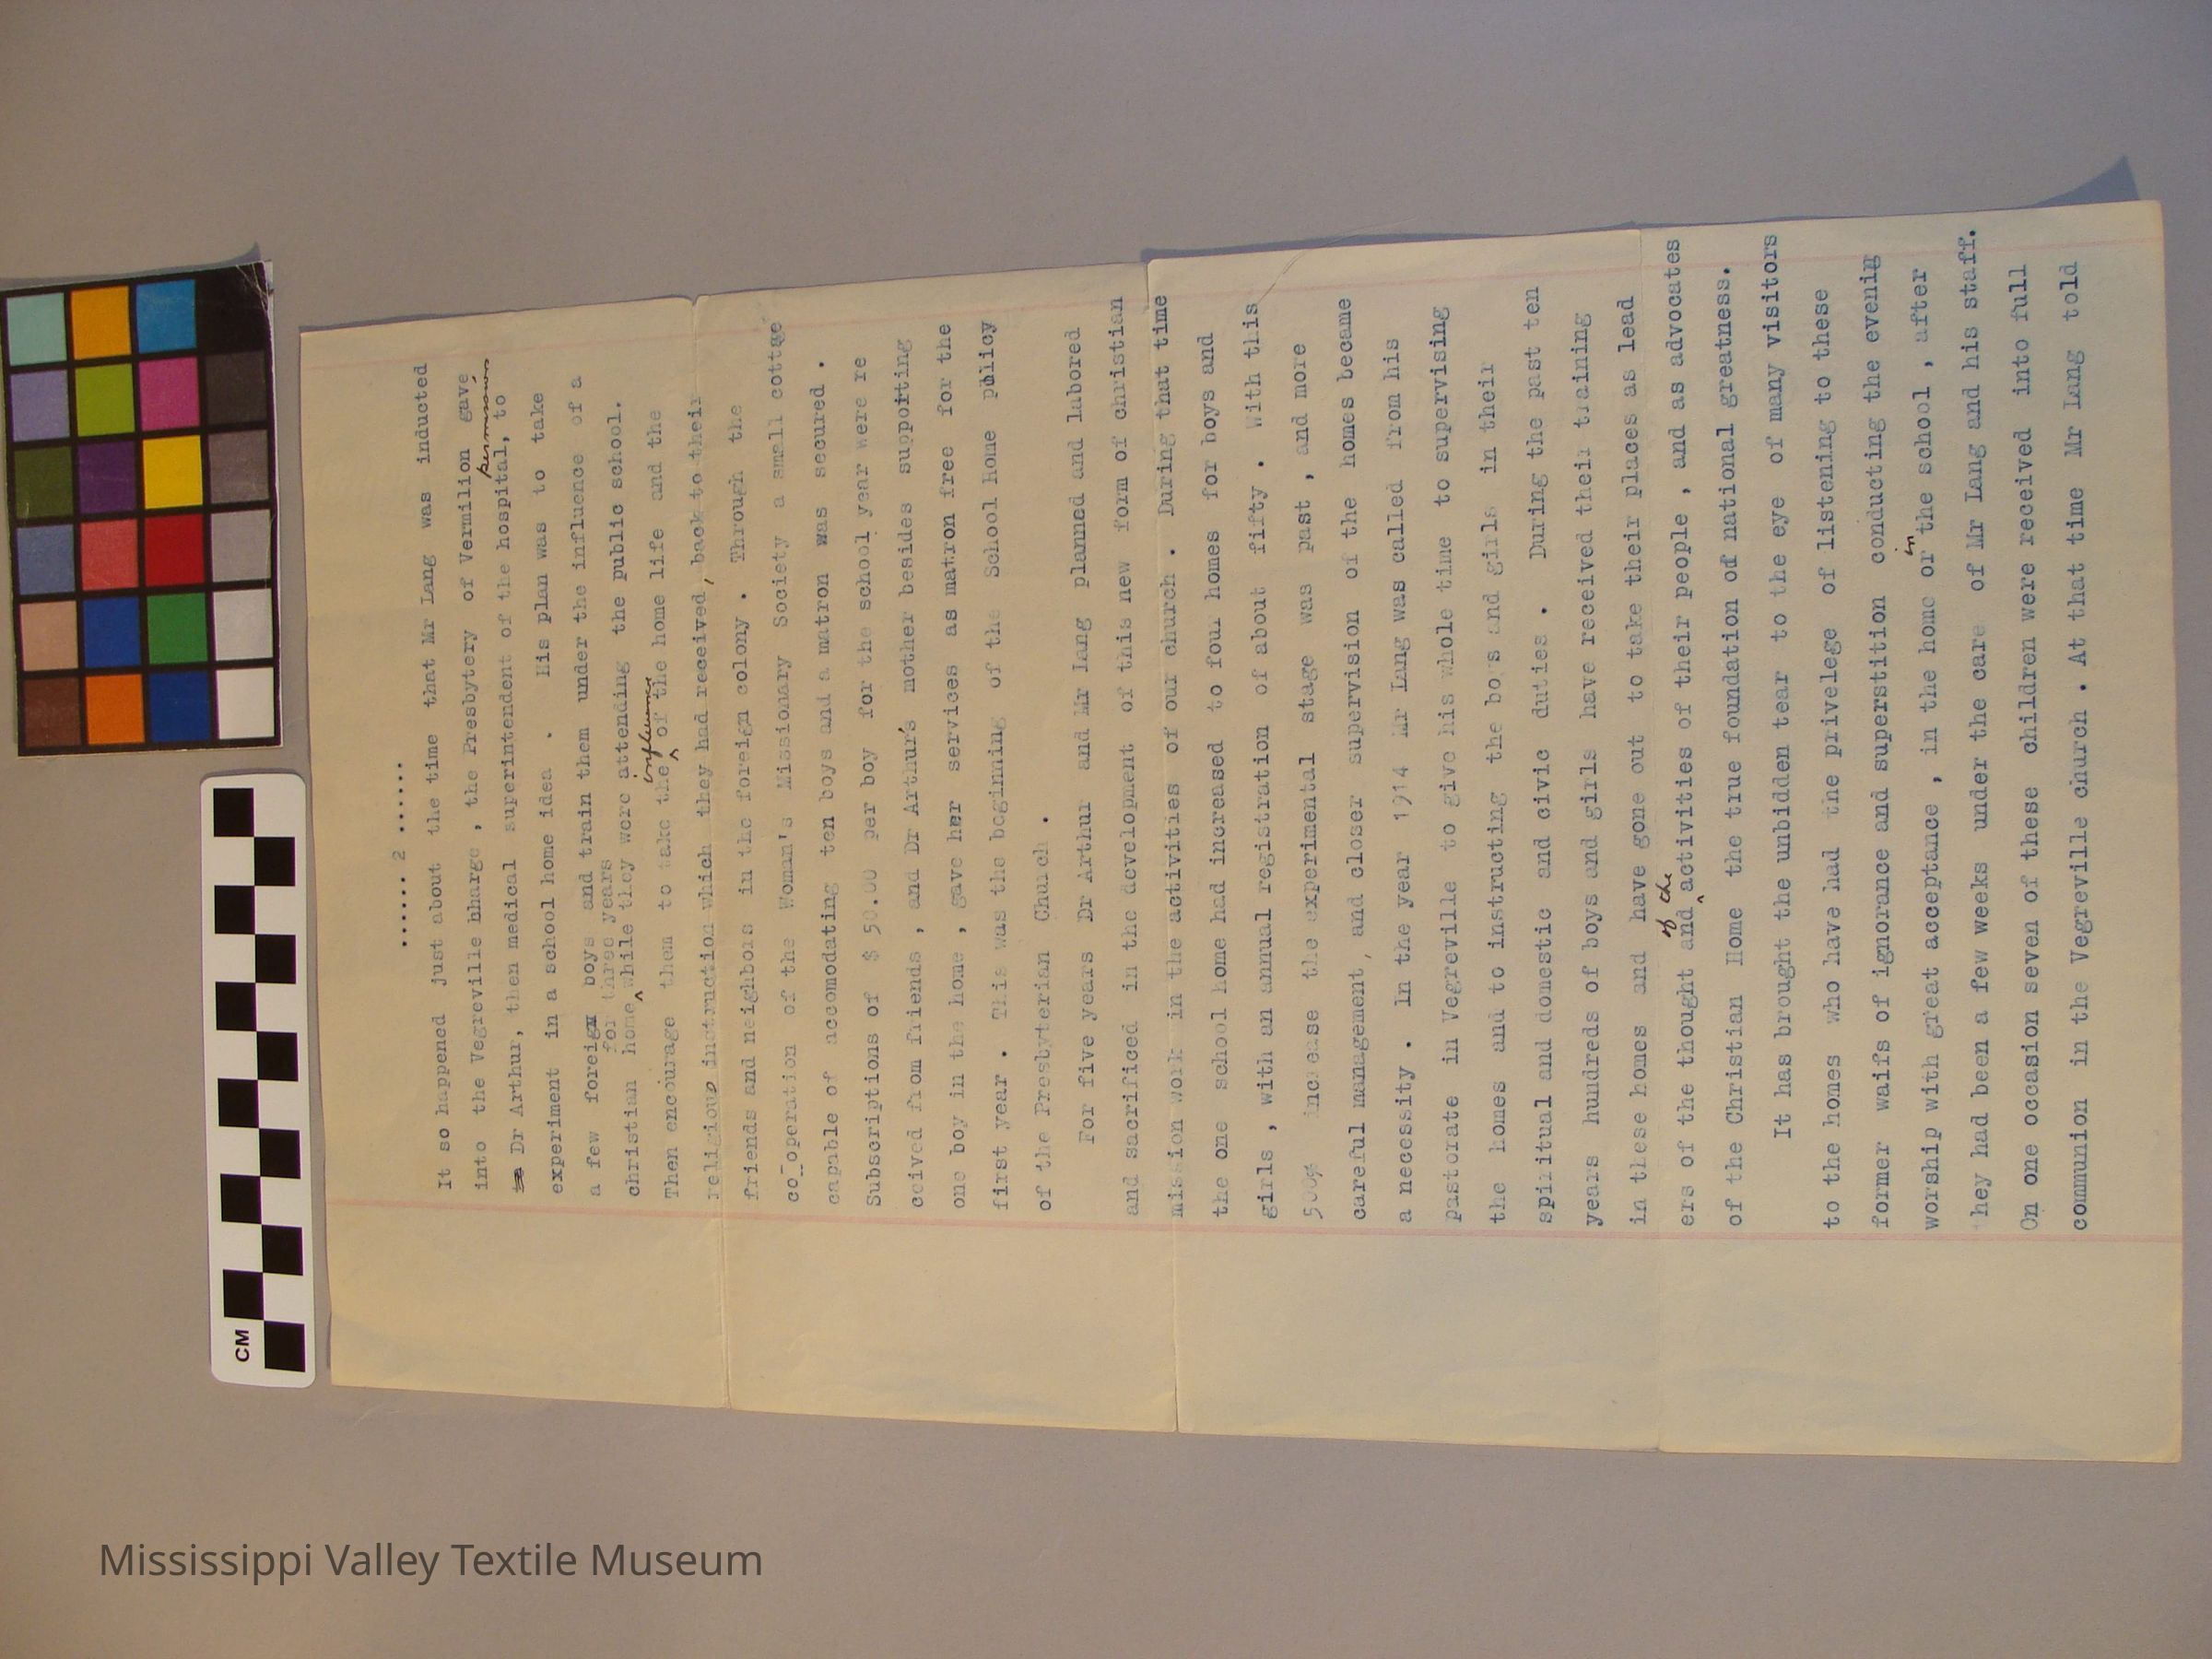 ...... 2 ......
It so happened just about the time that Mr Lang was inducted
into the Vegreville bharge , the Presbytery of Vermilion gave,
permission
Dr Arthur, then medical superintendent of the hospital, to
experiment in a school home idea . His plan was to take
a few foreign boys and train them under the influence of a
for three years
christian home while they were attending the public school.
influence
Then encourage them to take the of the home life and the
religious instruction which they had received, back to their
friends and neighbors in the foreign colony . Through the
co_operation of the Woman's Missionary Society a small cottge
capable of accomodating ten boys and a matron was secured .
Subscriptions of $ 50.00 per boy for the school year were re
ceived from friends , and Dr Arthur's mother besides supporting
one boy in the home , gave her services as matron free for the
first year . This was the beginning of the School home policy
of the Presbyterian Church .
For five years Dr Arthur and Mr Lang planned and labored
and sacrificed in the development of this new form of christian
mission work in the activities of our church . During that time
the one school home had increased to four homes for boys and
girls , with an annual registration of about fifty . With this
500% increase the experimental stage was past , and more
careful management, and closer supervision of the homes became
a necessity . In the year 1914 Mr Lang was called from his
pastorate in Vegreville to give his whole time to supervising
the homes and to instructing the boys and girls in their
spiritual and domestic and civic duties . During the past ten
years hundreds of boys and girls have received their training
in these homes and have gone out to take their places as lead
of the
ers of the thought and activities of their people , and as advocates
of the Christian Home the true foundation of national greatness.
It has brought the unbidden tear to the eye of many visitors
to the homes who have had the privelege of listening to these
former waifs of ignorance and superstition conducting the evenig
in
worship with great acceptance , in the home or the school , after
they had been a few weeks under the care of Mr Lang and his staff.
On one occasion seven of these children were received into full
communion in the Vegreville church . At that time Mr Lang told
CM
Mississippi Valley Textile Museum